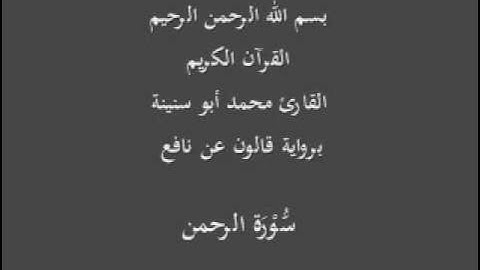 بسم الله الرحمن الرحيم
القرآن الكريم
القارئ محمد أبو سنينة
برواية قالون عن نافع
سُّوْرَة الرحمن